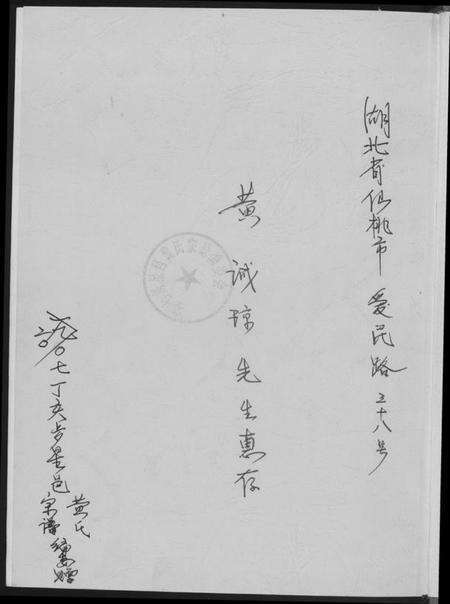 湖北省仙桃市爱民路三十八号
黄诚琼先生惠存
二〇〇七丁亥
黄氏
宗谱编委赠